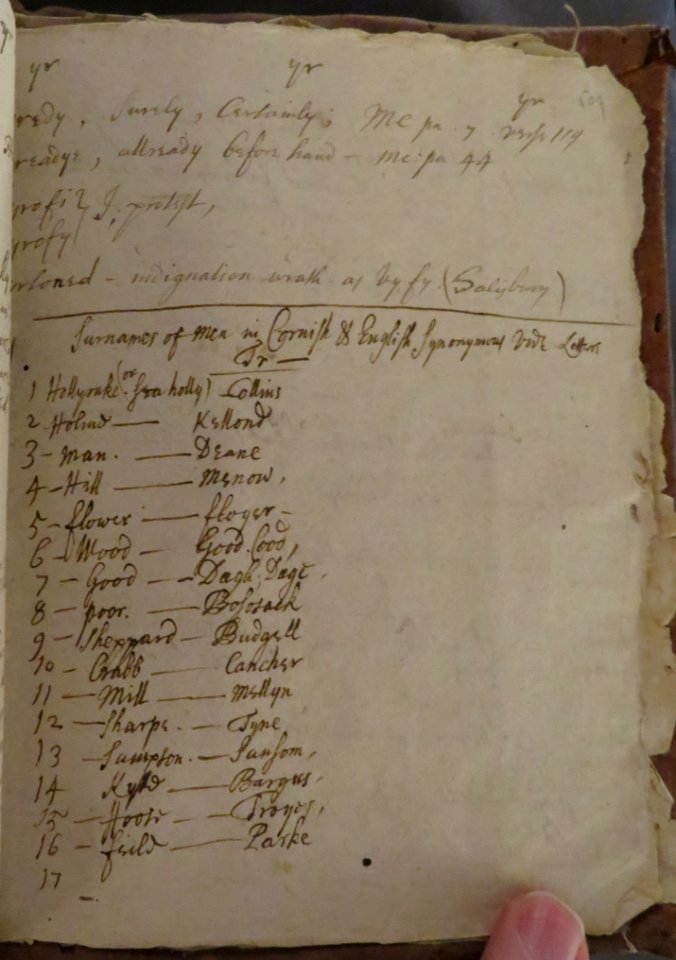 yr yr yr 109
redy, surely, Certainly; MC pa. 7 verse 119
readye, allready before hand - mc: pa 44
I. protest,
indignation wrath as vyfy (Salisbury)
Surnames of men in Cornish & English Synonymous Vide Letters
Tr —
1 Hollyoake (or sea holly) Collins
2 - Holme — Kellond
3 - man. — Deane
4 - Hill — Menow,
5 - flower — floger -
6 - Wood - Good. Cood,
7 - Good - Dagh, Dage
8 - poor. — Bohosack
9 - Sheppard - Budgell
10 - Crabb — Cancher
11 - Mill — Mellyn
12 - Sharpe. - Tyne
13 - Sampson. - Sansom,
14 Kytd — Bargus,
15 - Hoose — Troyes,
16 - feild — Parke
17 -